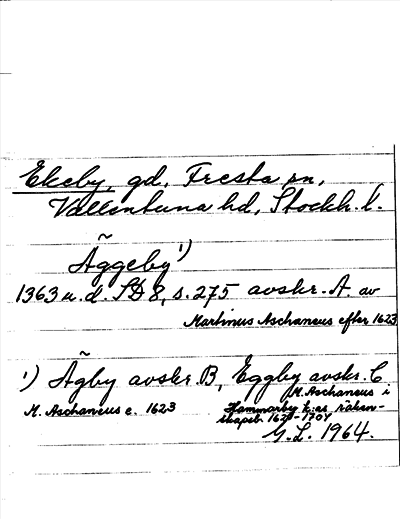 Ekeby, gd, Fresta sn,
Vallentuna hd, Stockh. l.
Ãggeby¹)
1363 u. d. SD 8, s. 275 avskr. A. av
Martinus Aschaneus efter 1623
¹) Ãgby avskr. B, Eggby avskr. C
M. Aschaneus e. 1623
M. Aschaneus i
Hammarby k:as räken-
skapsb. 1620-1704
G. L. 1964.